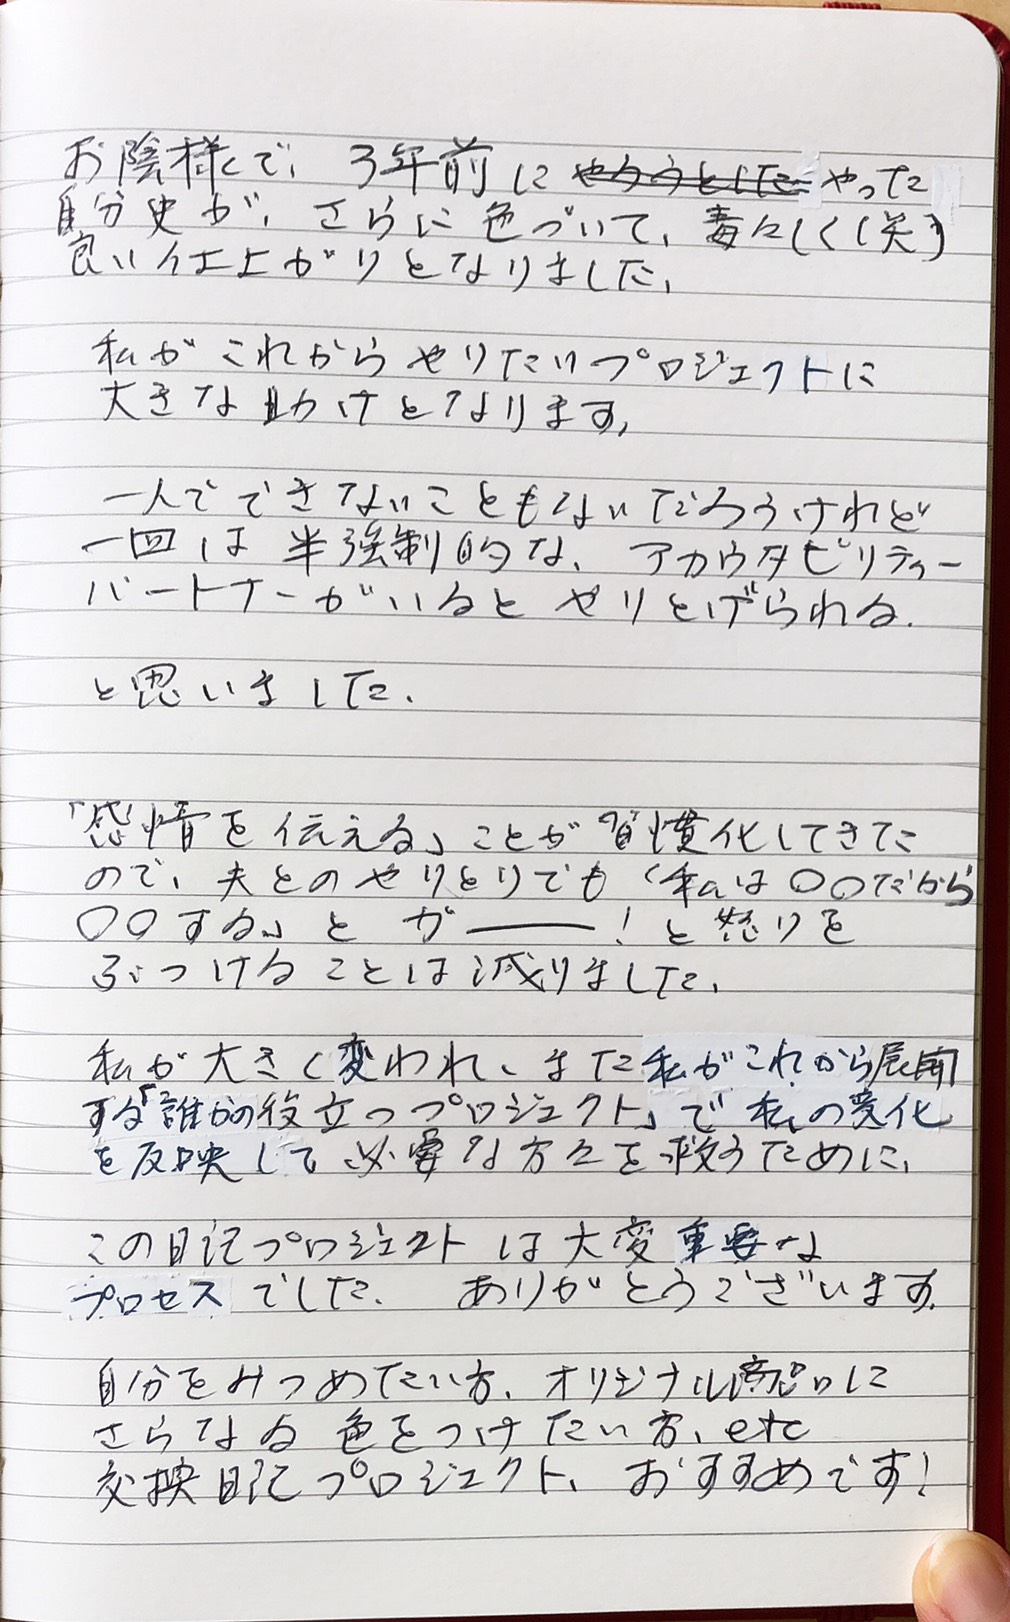 お陰様で、3年前に やろうとした やった
自分史が、さらに色づいて、毒々しく(笑)
良い仕上がりとなりました。
私がこれからやりたいプロジェクトに
大きな助けとなります。
一人でできないこともないだろうけれど
一回は半強制的な、アカウタビリティー
パートナーがいるとやりとげられる.
と思いました.
「感情を伝える」ことが習慣化してきた
ので、夫とのやりとりでも「私は〇〇だから
〇〇する」とガ――!と怒りを
ぶつけることは減りました。
私が大きく変われ、また私がこれから展開
する「誰かの役立つプロジェクト」で私の変化
を反映して必要な方々を救うために、
この日記プロジェクトは大変重要な
プロセスでした. ありがとうございます.
自分をみつめたい方、オリジナル商品に
さらなる色をつけたい方、etc
交換日記プロジェクト、おすすめです!